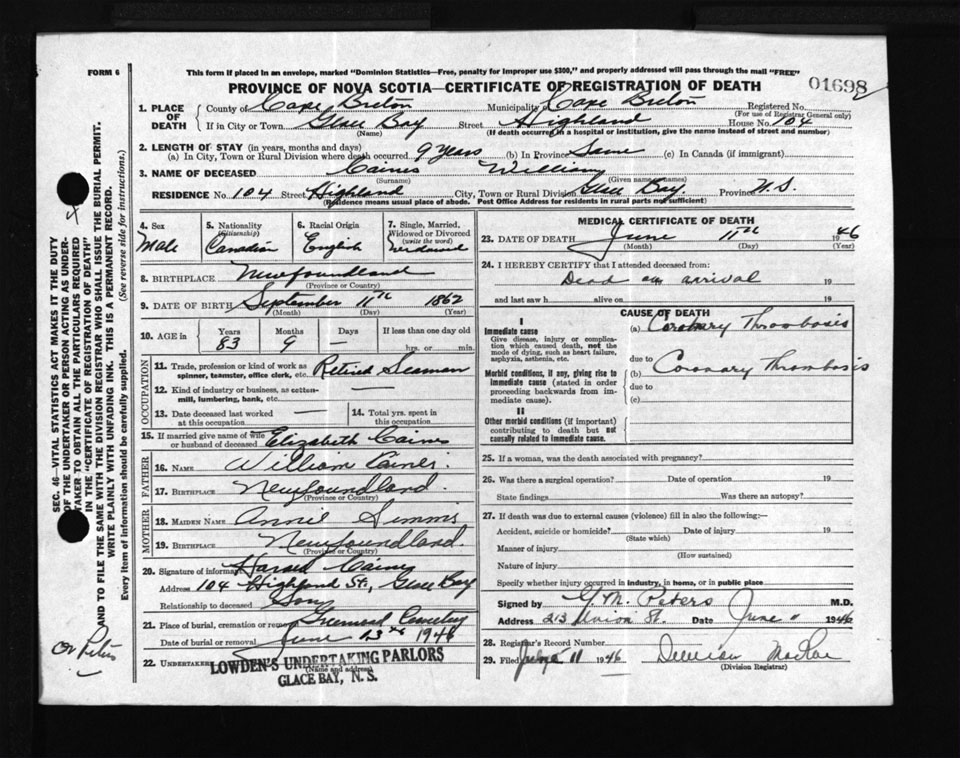 FORM 6
This form if placed in an envelope, marked "Dominion Statistics—Free, penalty for improper use $300," and properly addressed will pass through the mail "FREE"
PROVINCE OF NOVA SCOTIA—CERTIFICATE OF REGISTRATION OF DEATH
01698
1. PLACE OF DEATH County of Cape Breton Municipality of Cape Breton Registered No.
(For use of Registrar General only)
If in City or Town Glace Bay Street Highland House No. 104
(Name) (If death occurred in a hospital or institution, give the name instead of street and number)
2. LENGTH OF STAY (in years, months and days)
(a) In City, Town or Rural Division where death occurred 9 years (b) In Province Same (c) In Canada (if immigrant)
3. NAME OF DECEASED Caines William
(Surname) (Given name or names)
RESIDENCE No. 104 Street Highland City, Town or Rural Division Glace Bay. Province N.S.
(Residence means usual place of abode. Post Office Address for residents in rural parts not sufficient)
4. Sex Male
5. Nationality (Citizenship) Canadian
6. Racial Origin English
7. Single, Married, Widowed or Divorced (write the word) Widowed
8. BIRTHPLACE Newfoundland
(Province or Country)
9. DATE OF BIRTH September 11th 1862
(Month) (Day) (Year)
10. AGE in Years 83 Months 9 Days — If less than one day old hrs. or min.
OCCUPATION
11. Trade, profession or kind of work as spinner, teamster, office clerk, etc. Retired Seaman
12. Kind of industry or business, as cotton-mill, lumbering, bank, etc. —
13. Date deceased last worked at this occupation —
14. Total yrs. spent in this occupation
15. If married give name of wife or husband of deceased Elizabeth Caines
FATHER
16. NAME William Caines.
17. BIRTHPLACE Newfoundland.
(Province or Country)
MOTHER
18. MAIDEN NAME Annie Simms
19. BIRTHPLACE Newfoundland.
(Province or Country)
20. Signature of informant Harold Caines
Address 104 Highland St., Glace Bay
Relationship to deceased Son
21. Place of burial, cremation or removal Greenwood Cemetery
Date of burial or removal June 13th 1946
22. UNDERTAKER LOWDEN'S UNDERTAKING PARLORS
(Name and address)
GLACE BAY, N. S.
MEDICAL CERTIFICATE OF DEATH
23. DATE OF DEATH June 11th 1946
(Month) (Day) (Year)
24. I HEREBY CERTIFY that I attended deceased from:
Dead on arrival 19
and last saw h alive on 19
CAUSE OF DEATH
I
Immediate cause
Give disease, injury or complication which caused death, not the mode of dying, such as heart failure, asphyxia, asthenia, etc.
(a) Coronary Thrombosis
due to
Morbid conditions, if any, giving rise to immediate cause (stated in order proceeding backwards from immediate cause).
(b) Coronary Thrombosis
due to
(c)
II
Other morbid conditions (if important) contributing to death but not causally related to immediate cause.
25. If a woman, was the death associated with pregnancy?
26. Was there a surgical operation? Date of operation 19
State findings Was there an autopsy?
27. If death was due to external causes (violence) fill in also the following:—
Accident, suicide or homicide? Date of injury 19
(State which)
Manner of injury
(How sustained)
Nature of injury
Specify whether injury occurred in industry, in home, or in public place
Signed by G. M. Peters M.D.
Address 213 Union St. Date June 11 1946
28. Registrar's Record Number
29. Filed 11 1946 MacRae
(Division Registrar)
SEC. 46—VITAL STATISTICS ACT MAKES IT THE DUTY
OF THE UNDERTAKER OR PERSON ACTING AS UNDER-
TAKER TO OBTAIN ALL THE PARTICULARS REQUIRED
IN THE "CERTIFICATE OF REGISTRATION OF DEATH"
AND TO FILE THE SAME WITH THE DIVISION REGISTRAR WHO SHALL ISSUE THE BURIAL PERMIT.
WRITE PLAINLY WITH UNFADING INK. THIS IS A PERMANENT RECORD.
Every item of information should be carefully supplied. (See reverse side for instructions.)
Peters